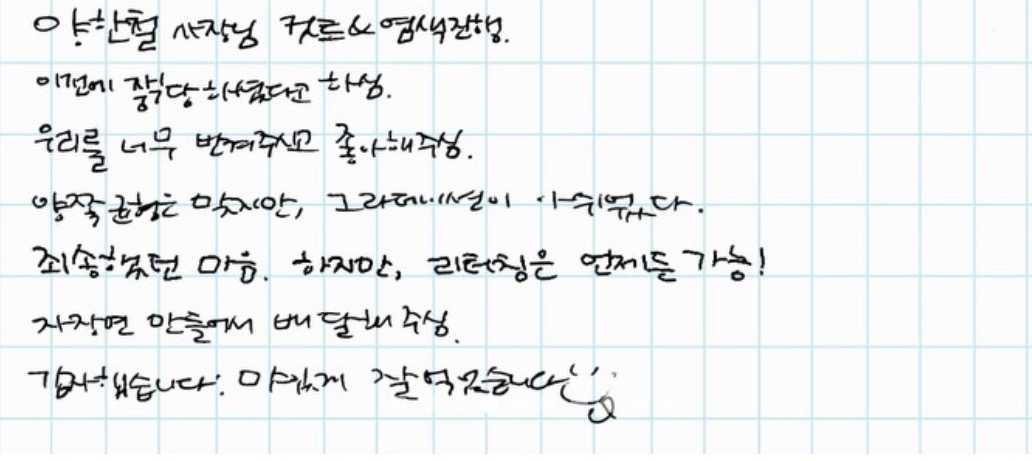 양한철 사장님 컷트&염색진행.
이전에 중식당 하셨다고 하심.
우리를 너무 반겨주시고 좋아해주심.
양쪽 균형은 맞지만, 그라데이션이 아쉬웠다.
죄송했던 마음. 하지만, 리터칭은 언제든 가능!
자장면 만들어서 배달해주심.
감사했습니다. 맛있게 잘 먹었습니다